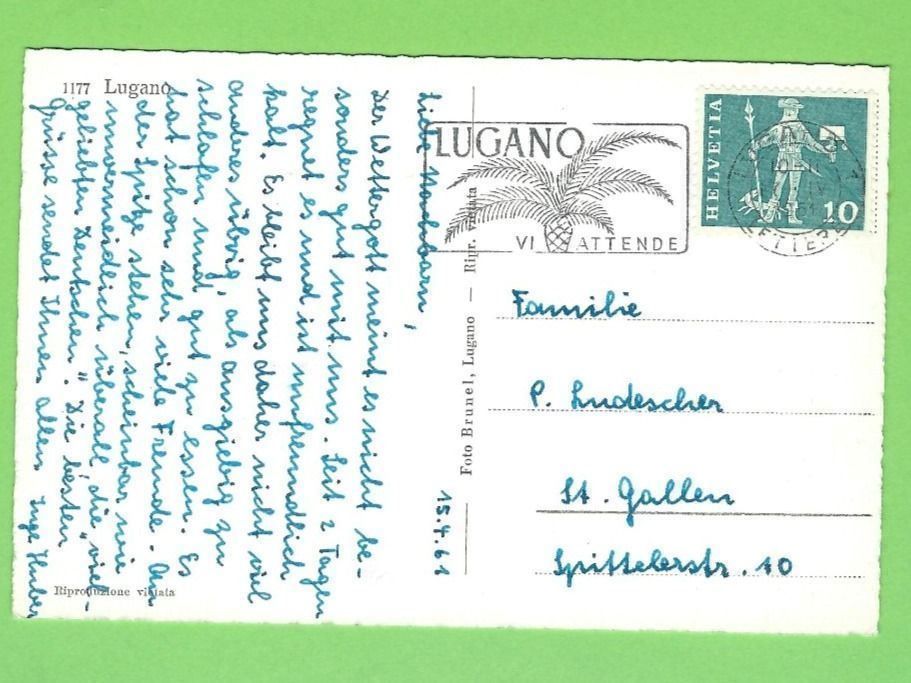 1177 Lugano
15.4.61
Liebe Nachbarn,
Der Wettergott meint es nicht be-
sonders gut mit uns. Seit 2 Tagen
regnet es und ist unfreundlich
kalt. Es bleibt uns daher nicht viel
anderes übrig, als ausgiebig zu
schlafen und gut zu essen. Es
hat schon sehr viele Fremde. An
der Spitze stehen, scheinbar wie
unvermeidlich überall, die "viel-
geliebten Deutschen". Die besten
Grüsse sendet Ihnen allen Inge Huber
Riproduzione vietata
Foto Brunel, Lugano — Ripr. vietata
LUGANO
VI ATTENDE
HELVETIA
10
LETTERE
Familie
P. Ludescher
St. Gallen
Spittelerstr. 10